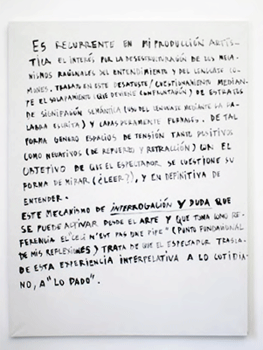 ES RECURRENTE EN MI PRODUCCIÓN ARTÍS-
TICA EL INTERÉS POR LA DESESTRUCTURACIÓN DE LOS MECA-
NISMOS RACIONALES DEL ENTENDIMIENTO Y DEL LENGUAJE CO-
MUNES. TRABAJO EN ESTE DESAJUSTE/CUESTIONAMIENTO MEDIAN-
TE EL SOLAPAMIENTO (QUE DEVIENE CONFRONTACIÓN) DE ESTRATOS
DE SIGNIFICACIÓN SEMÁNTICA (USO DEL LENGUAJE MEDIANTE LA PA-
LABRA ESCRITA) Y CAPAS PURAMENTE FORMALES. DE TAL
FORMA GENERO ESPACIOS DE TENSIÓN TANTO POSITIVOS
COMO NEGATIVOS (DE REFUERZO Y RETRACCIÓN) CON EL
OBJETIVO DE QUE EL ESPECTADOR SE CUESTIONE SU
FORMA DE MIRAR (¿LEER?), Y EN DEFINITIVA DE
ENTENDER.
ESTE MECANISMO DE INTERROGACIÓN Y DUDA QUE
SE PUEDE ACTIVAR DESDE EL ARTE Y QUE TOMA COMO RE-
FERENCIA EL "CECI N'EST PAS UNE PIPE" (PUNTO FUNDAMENTAL
DE MIS REFLEXIONES) TRATA DE QUE EL ESPECTADOR TRASLA-
DE ESTA EXPERIENCIA INTERPELATIVA A LO COTIDIA-
NO, A "LO DADO".